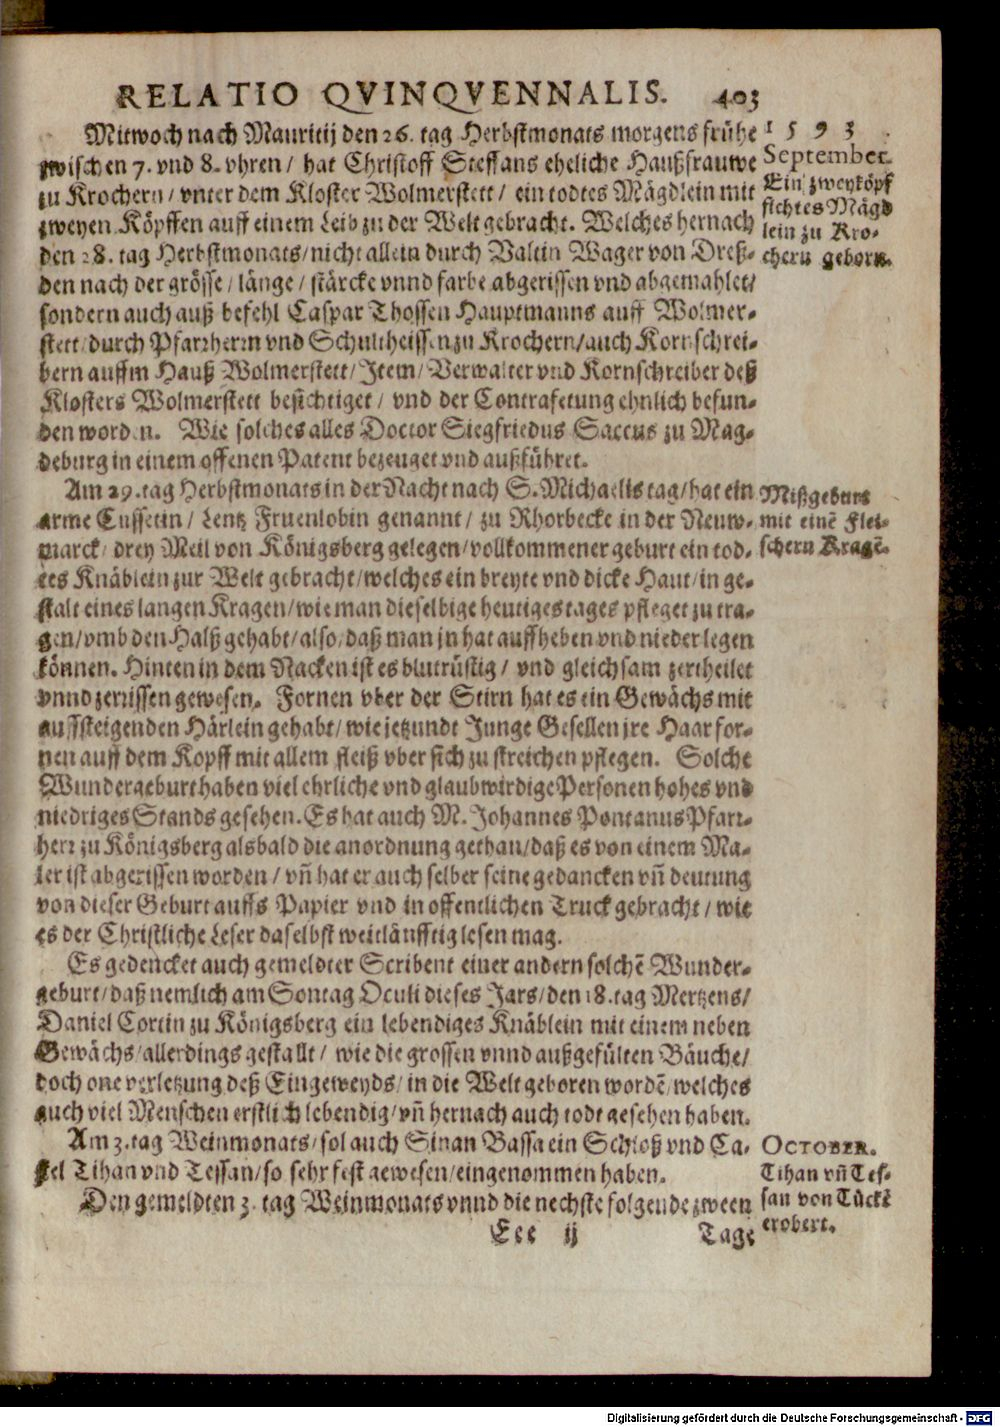 RELATIO QVINQVENNALIS. 403
Mitwoch nach Mauritij den 26. tag Herbstmonats morgens frühe
zwischen 7. vnd 8. vhren/ hat Christoff Steffans eheliche Haußfrauwe
zu Krochern/ vnter dem Kloster Wolmerstett/ ein todtes Mägdlein mit
zweyen Köpffen auff einem Leib zu der Welt gebracht. Welches hernach
den 28. tag Herbstmonats/ nicht allein durch Valtin Wager von Dreß-
den nach der grösse/ länge/ stärcke vnnd farbe abgerissen vnd abgemahlet/
sondern auch auß befehl Caspar Thossen Hauptmanns auff Wolmer-
stett/ durch Pfarrherrn vnd Schultheissen zu Krochern/ auch Kornschrei-
bern auffm Hauß Wolmerstett/ Item/ Verwalter vnd Kornschreiber deß
Klosters Wolmerstett besichtiget/ vnd der Contrafetung ehnlich befun-
den word n. Wie solches alles Doctor Siegfriedus Saccus zu Mag-
deburg in einem offenen Patent bezeuget vnd außführet.
Am 29. tag Herbstmonats in der Nacht nach S. Michaelis tag/ hat ein
arme Cussetin/ Lentz Fruenlobin genannt/ zu Rhorbecke in der Neuw-
marck/ drey Meil von Königsberg gelegen/ vollkommener geburt ein tod-
tes Knäblein zur Welt gebracht/ welches ein breyte vnd dicke Haut/ in ge-
stalt eines langen Kragen/ wie man dieselbige heutiges tages pfleget zu tra-
gen/ vmb den Halß gehabt/ also/ daß man jn hat auffheben vnd nieder legen
können. Hinten in dem Nacken ist es blutrüstig/ vnd gleichsam zertheilet
vnnd zerrissen gewesen. Fornen vber der Stirn hat es ein Gewächs mit
auffsteigenden Härlein gehabt/ wie jetzundt Junge Gesellen jre Haar for-
nen auff dem Kopff mit allem fleiß vber sich zu streichen pflegen. Solche
Wundergeburt haben viel ehrliche vnd glaubwirdige Personen hohes vnd
niedriges Stands gesehen. Es hat auch M. Johannes Pontanus Pfarr-
herr zu Königsberg alsbald die anordnung gethan/ daß es von einem Ma-
ler ist abgerissen worden/ vñ hat er auch selber seine gedancken vñ deutung
von dieser Geburt auffs Papier vnd in offentlichen Truck gebracht/ wie
es der Christliche Leser daselbst weitläufftig lesen mag.
Es gedencket auch gemeldter Scribent einer andern solchẽ Wunder-
geburt/ daß nemlich am Sontag Oculi dieses Jars/ den 18. tag Mertzens/
Daniel Cortin zu Königsberg ein lebendiges Knäblein mit einem neben
Gewächs/ allerdings gestallt/ wie die grossen vnnd außgefülten Bäuche/
doch one verletzung deß Eingeweyds/ in die Welt geboren wordẽ/ welches
auch viel Menschen erstlich lebendig/ vñ hernach auch todt gesehen haben.
Am 3. tag Weinmonats/ sol auch Sinan Bassa ein Schloß vnd Ca-
stel Tihan vnd Tessan/ so sehr fest gewesen/ eingenommen haben.
Den gemeldten 3. tag Weinmonats vnnd die nechste folgende zween
Eee ij Tage
1 5 9 3
September.
Ein zweyköpf
fichtes Mägd
lein zu Kro-
chern geborn.
Mißgeburt
mit einẽ Flei-
schern Kragẽ.
OCTOBER.
Tihan vñ Tes-
san von Türckẽ
erobert.
Digitalisierung gefördert durch die Deutsche Forschungsgemeinschaft - DFG